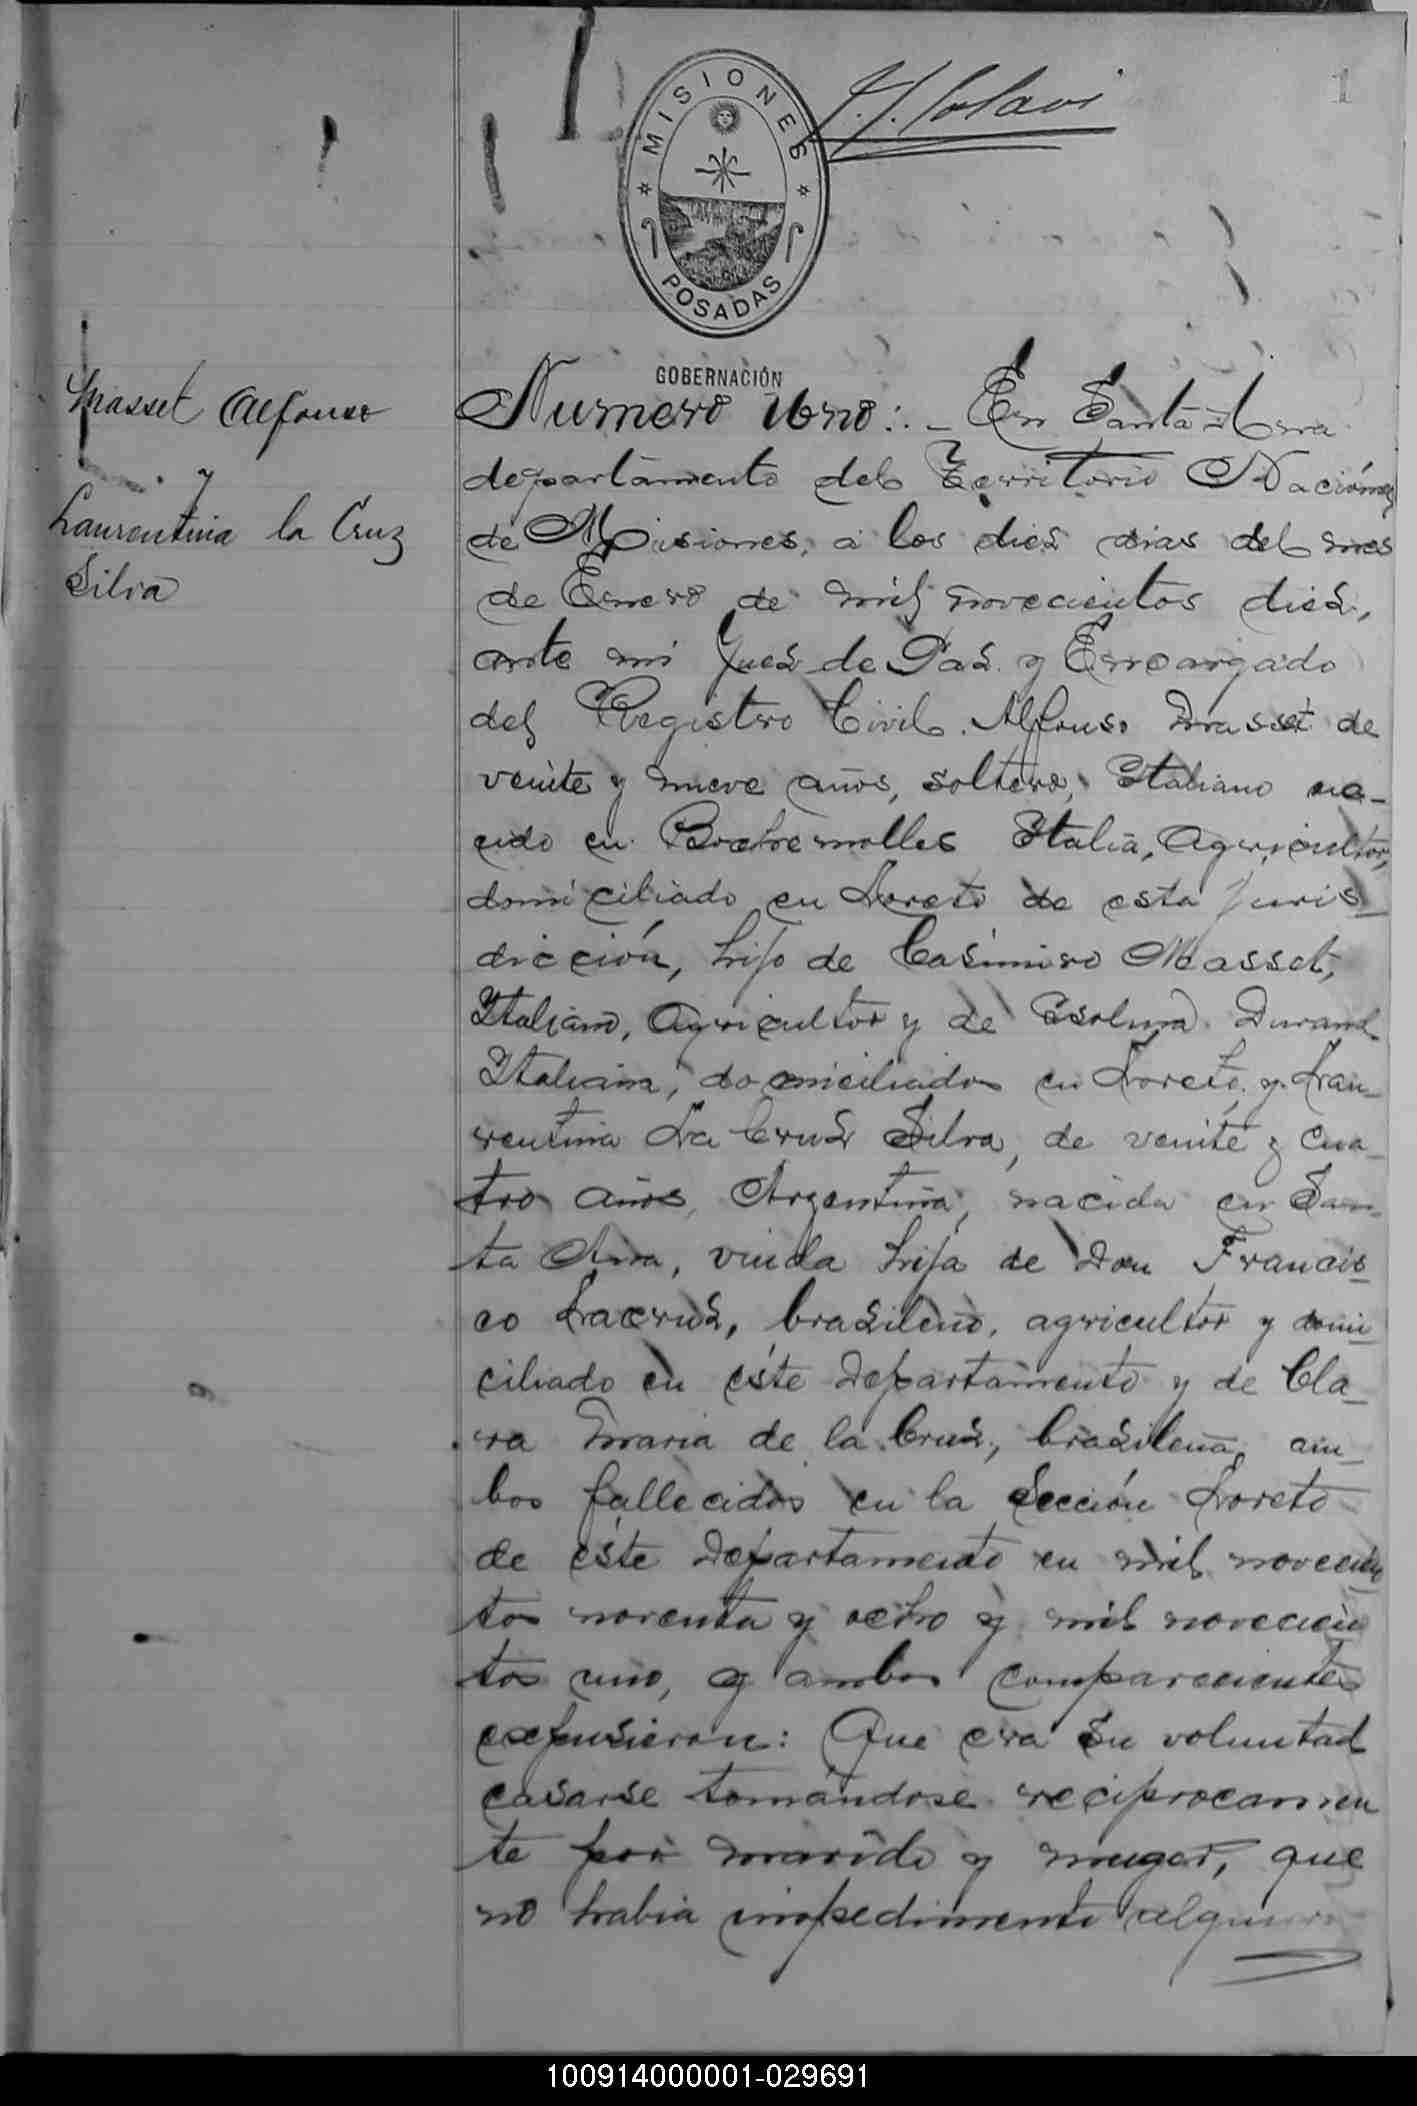 1
MISIONES
POSADAS
GOBERNACIÓN
Masset Alfonso
y
Laurentina la Cruz
Silva
Numero Uno:.- En Santa Ana
departamento del Territorio Nacional
de Misiones, á los dies dias del mes
de Enero de mil novecientos dies,
ante mi Jues de Pas y Encargado
del Registro Civil. Alfonso Masset de
veinte y nueve años, soltero, Italiano na-
cido en Italia, Agricultor,
domiciliado en Loreto de esta juris-
dicción, hijo de Casimiro Masset,
Italiano, Agricultor y de Durand
Italiana, domiciliados en Loreto y Lau-
rentina La Crus Silva, de veinte y cua-
tro años, Argentina, nacida en San-
ta Ana, viuda hija de Don Francis-
co Lacrus, brasileño, agricultor y domi-
ciliado en éste Departamento y de Cla-
ra Maria de la Crus, brasileña, am-
bos fallecidos en la Sección Loreto
de éste Departamento en mil novecien
tos noventa y ocho y mil novecien
tos uno, y ambos comparecientes
expusieron: Que era su voluntad
casarse tomandose reciprocamen
te por marido y muger, que
no habia impedimento alguno
100914000001-029691